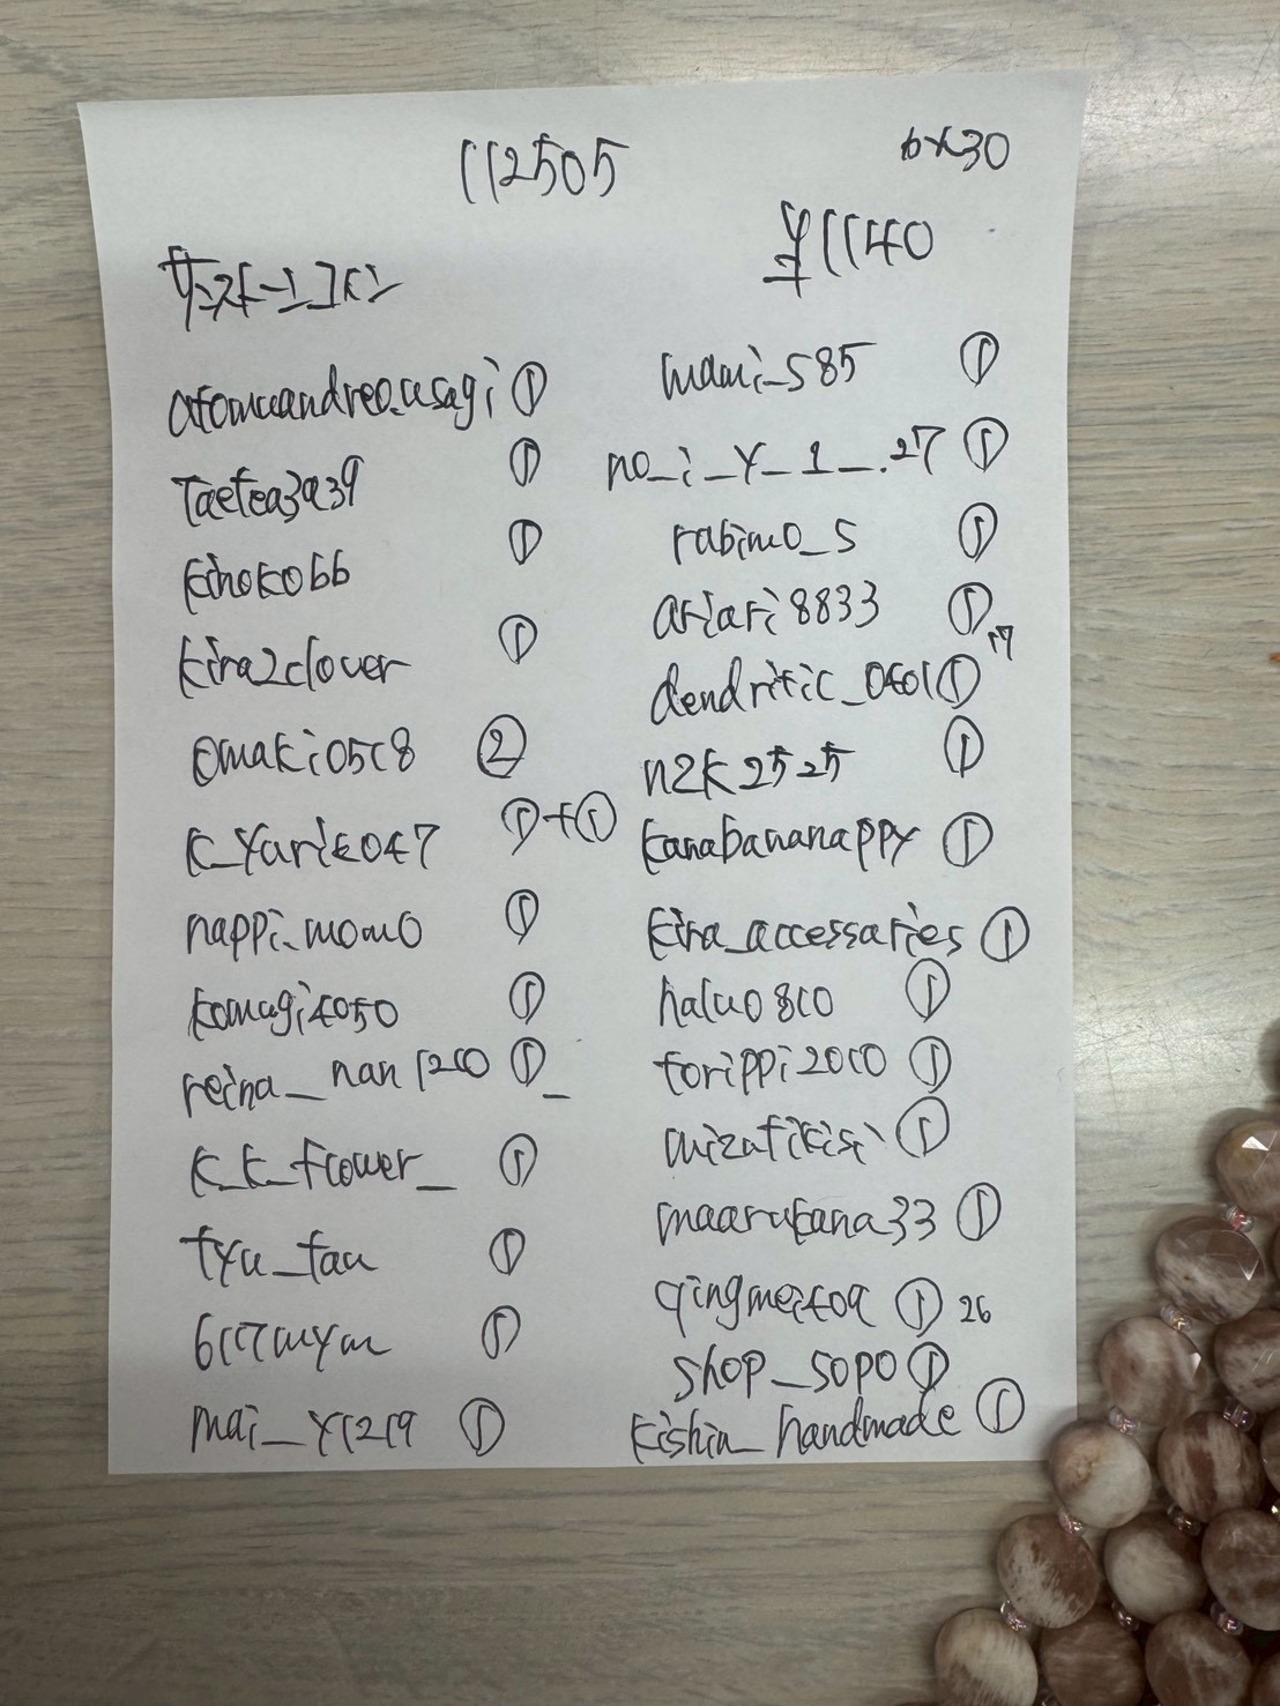 112505
6x30
¥1140
サンストーンコイン
atomuandreo.usagi ①
taetea3a39 ①
kinoko66 ①
kira2clover ①
omaki0518 ②
k_yariko47 ①+①
nappi_momo ①
komagi4050 ①
reina_nan1210 ①_
k_k_flower_ ①
tyu_tau ①
617mym ①
mai_y1219 ①
mami_s85 ①
no_i_y_1_.27 ①
rabimo_s ①
ariari8833 ①
17
dendritic_0401 ①
n2k2525 ①
kanabananappy ①
kira_accessaries ①
halu0810 ①
torippi2010 ①
mizutikisi ①
maarukana33 ①
qingmei409 ① 26
shop_sopo ①
kishin_handmade ①